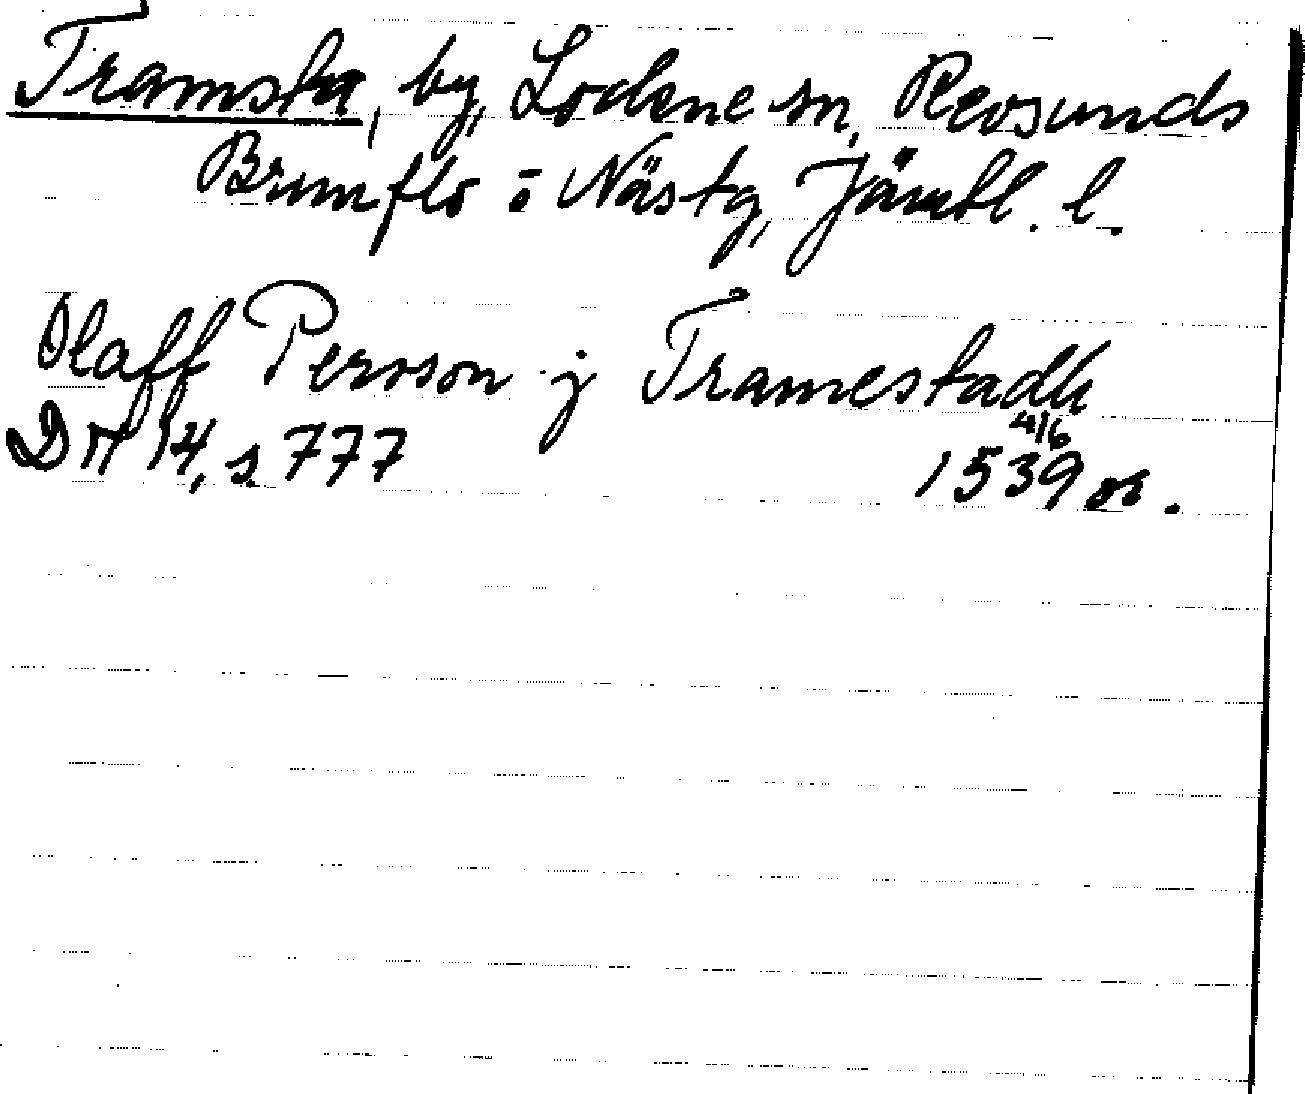 Tramsta, by, Lockne sn, Revsunds
Brunflo o Näs tg, Jämtl. l.
Olaff Persson j Tramestadh
DN 14, s. 777 1539 4/6 or.